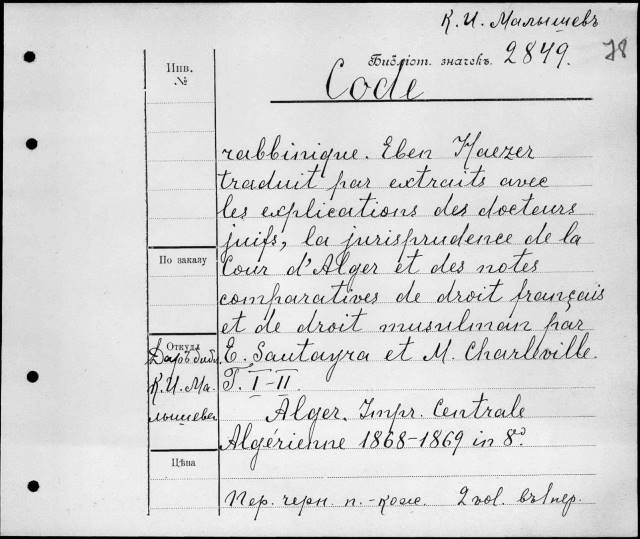 К. И. Малышевъ
Библіот. значекъ. 2849. 78
Code
Инв.
№
rabbinique. Eben Haezer
traduit par extraits avec
les explications des docteurs
juifs, la jurisprudence de la
Cour d'Alger et des notes
comparatives de droit français
et de droit musulman par
E. Sautayra et M. Charleville.
T. I-II.
Alger. Impr. Centrale
Algérienne 1868-1869 in 8º.
По заказу
Откуда
Даръ библ.
К. И. Ма-
лышева
Цѣна
Пер. черн. п.-кож. 2 vol. въ 1 пер.